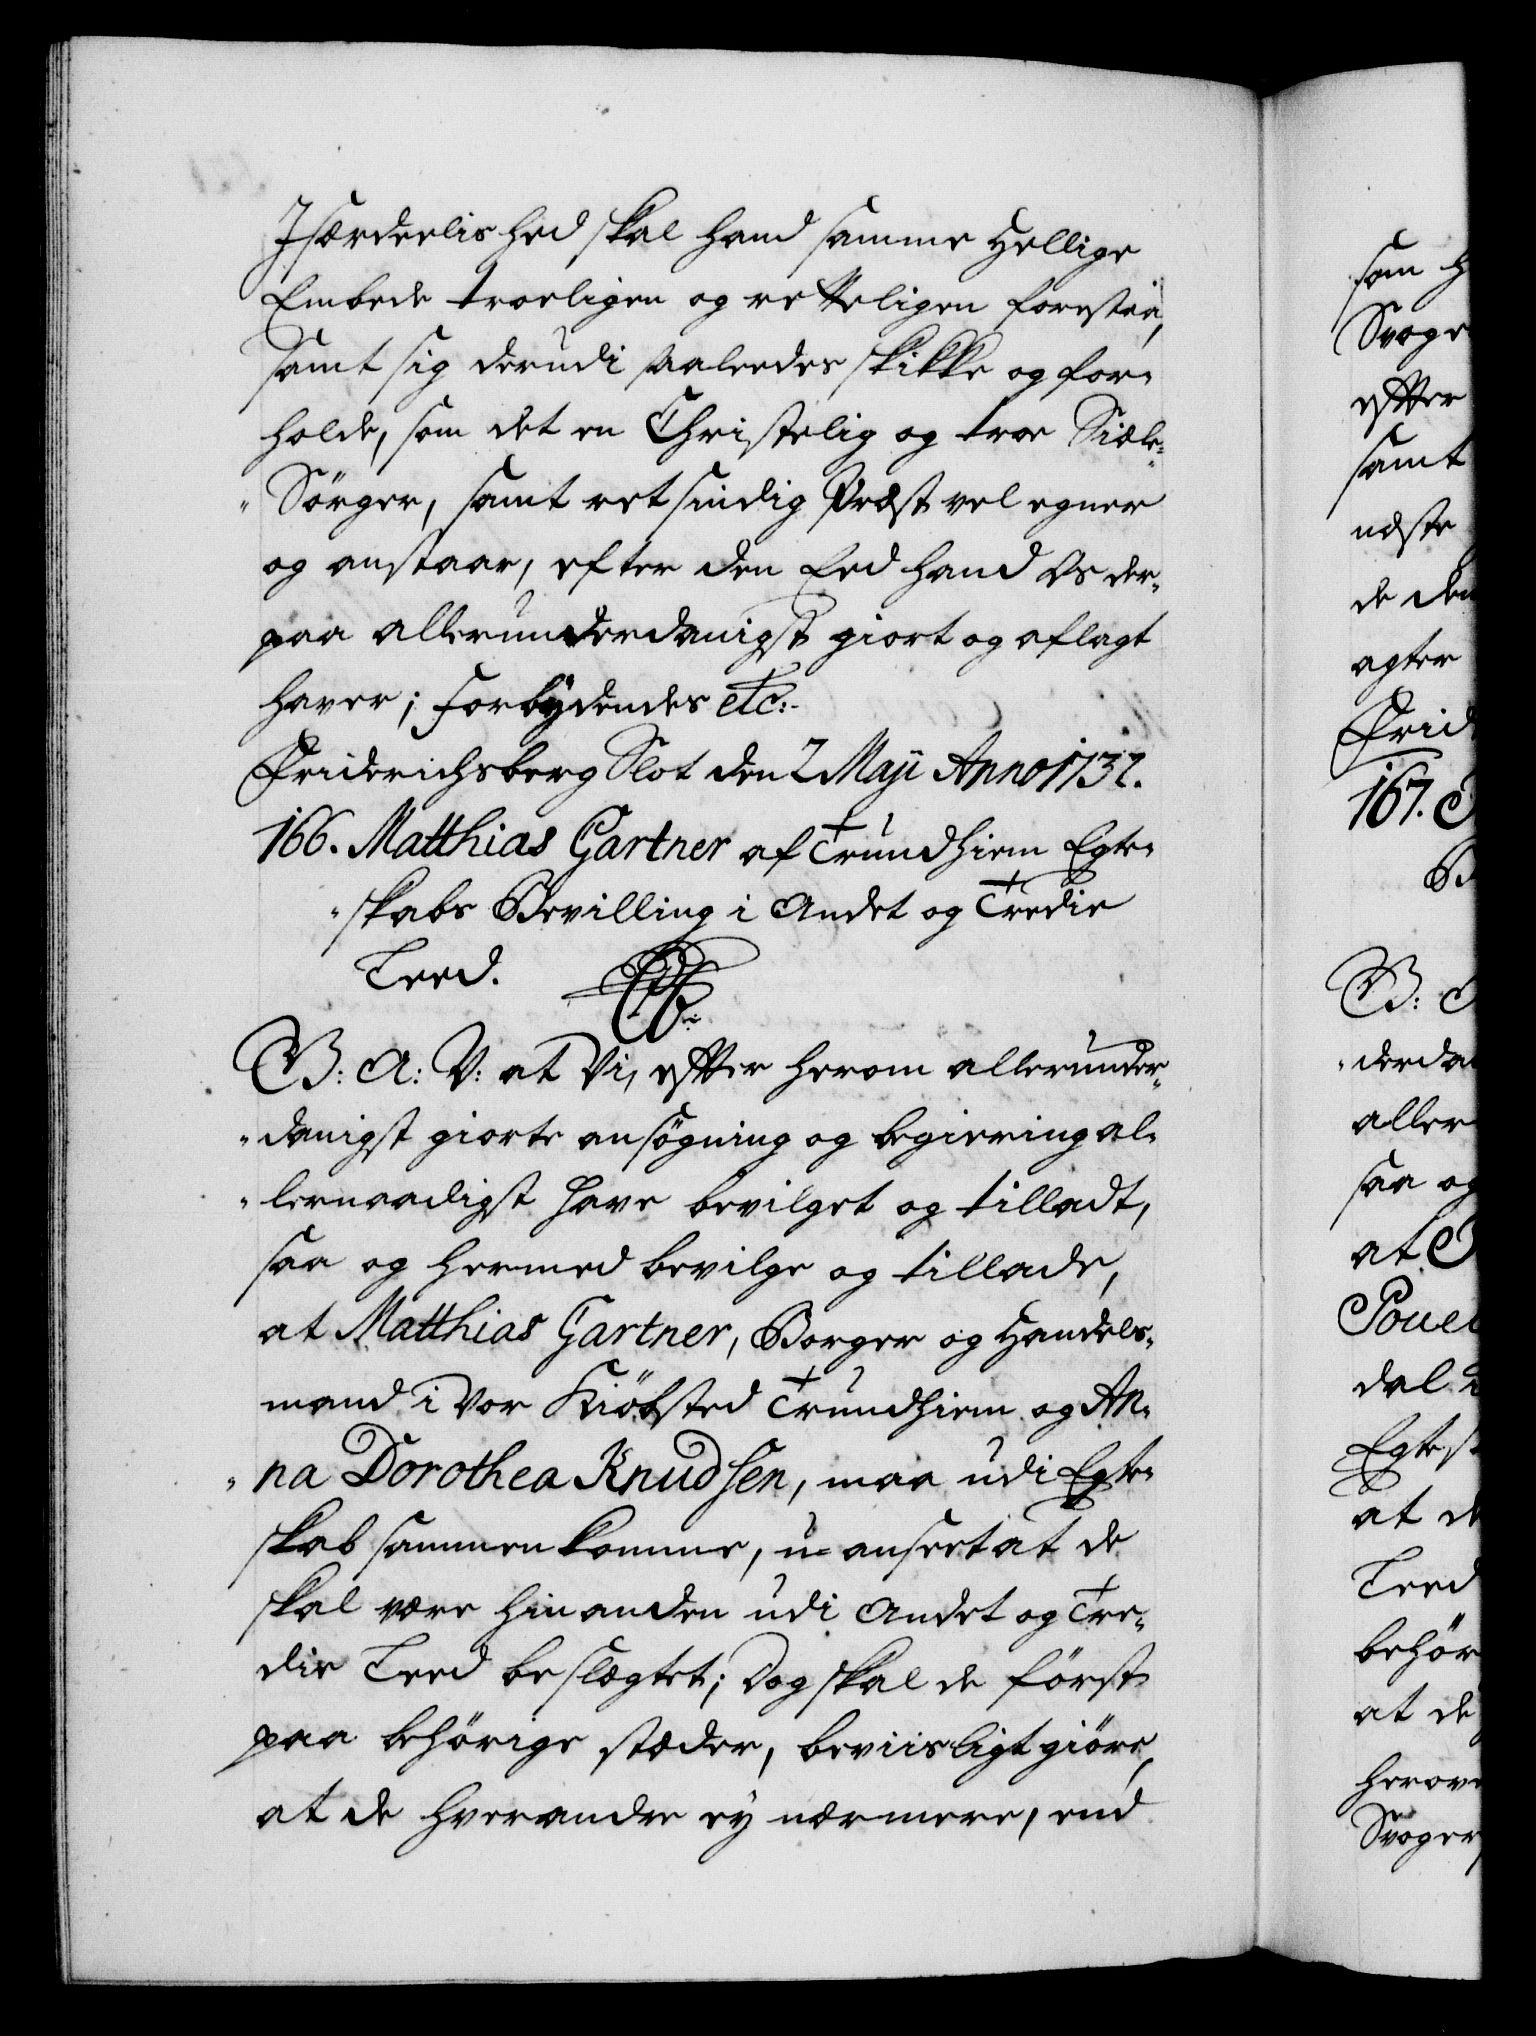 Jsærdeelished skal hand samme Hellige
Embede troeligen og retteligen forestaa,
samt sig derudi saaleedes skikke og for-
holde, som det en Christelig og troe Siæle-
Sörger, samt retsindig Præst vel egner
og anstaar, efter den Eed hand Os der-
paa allerunderdanigst giort og aflagt
haver; forbÿdendes etc:
Friderichsberg Slot den 2 Maji Anno 1732.
166. Matthias Gartner af Trundhiem Egte-
skabs Bevilling i Andet og Tredie
Leed.
G: A: V: at Vi, efter herom allerunder-
danigst giorte ansögning og begiering al-
lernaadigst have bevilget og tilladt,
saa og hermed bevilge og tillade,
at Matthias Gartner, Borger og Handels-
mand i Vor Kiöbsted Trundhiem og An-
na Dorothea Knudsen, maa udi Egte-
skab sammenkomme, u-anseet at de
skal være hinanden udi Andet og Tre-
die Leed beslægtet; Dog skal de först
paa behörige stæder, beviisligt giöre,
at de hverandre ey nærmere, end
som H
Svoge
efter
samt
næste
de den
agter
Frid
167.
B
B:
derda
aller
saa og
at
Pouel
dal
Egtesk
at de
Leed
behör
at de
herove
Svoger